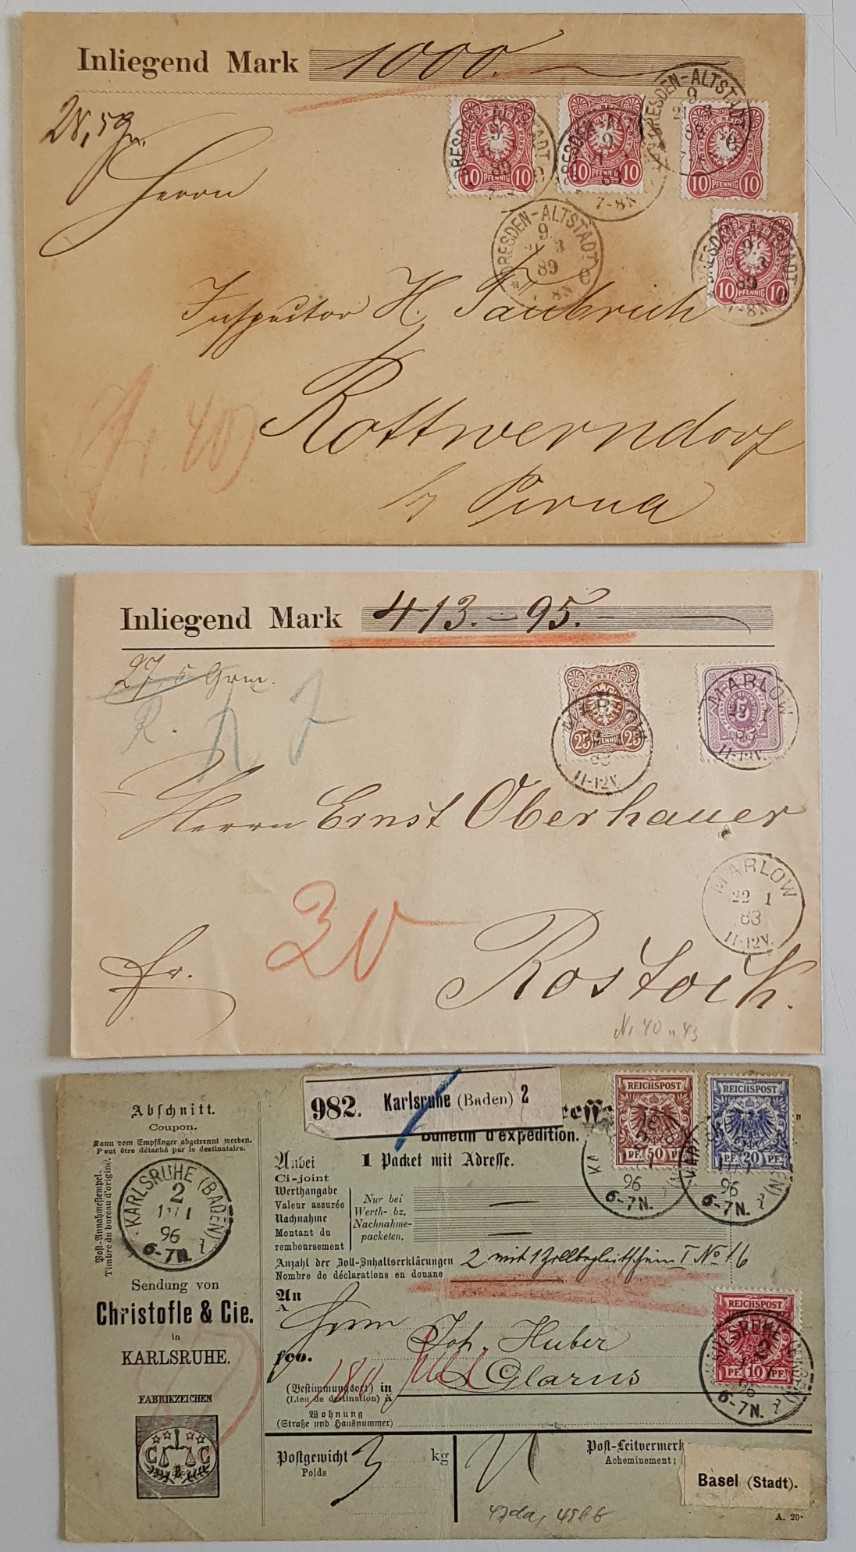 Inliegend Mark 1000.
28,5 gr.
Herrn
Inspector H. Taubrich
Rottwerndorf
b/ Pirna
10 PFENNIG 10
10 PFENNIG 10
10 PFENNIG 10
10 PFENNIG 10
DRESDEN-ALTSTADT
9.
89
7-8N
Inliegend Mark 413.-95.
27,5 Grm.
R.
25 PFENNIG 25
5
MARLOW
MARLOW
11-12V.
Herrn Ernst Oberhauer
MARLOW
22 1
83
11-12V.
30
fr.
Rostock.
Abschnitt.
Coupon.
Kann vom Empfänger abgetrennt werden.
Peut être détaché par le destinataire.
Post-Annahmestempel.
Timbre du bureau d'origine.
KARLSRUHE (BADEN)
2
96
6-7N.
Sendung von
Christofle & Cie.
in
KARLSRUHE.
FABRIKZEICHEN
C C
982. Karlsruhe (Baden) 2
Bulletin d'expédition.
REICHSPOST
PF. 50 PF.
REICHSPOST
PF. 20 PF.
96
6-7N.
96
6-7N.
Anbei 1 Packet mit Adresse.
Ci-joint
Werthangabe
Valeur assurée
Nachnahme
Montant du
remboursement
Nur bei
Werth- bz.
Nachnahme-
packeten.
Anzahl der Zoll-Inhaltserklärungen 2 mit 1 Zollbegleitschein I No 16
Nombre de déclarations en douane
An
A
Herrn Joh. Huber
fco.
Glarus
(Bestimmungsort) in
(Lieu de destination) à
Wohnung
(Straße und Hausnummer)
REICHSPOST
PF. 10 PF.
2
96
6-7N.
Postgewicht 3 kg
Poids
Post-Leitvermerk
Acheminement:
Basel (Stadt).
A. 20